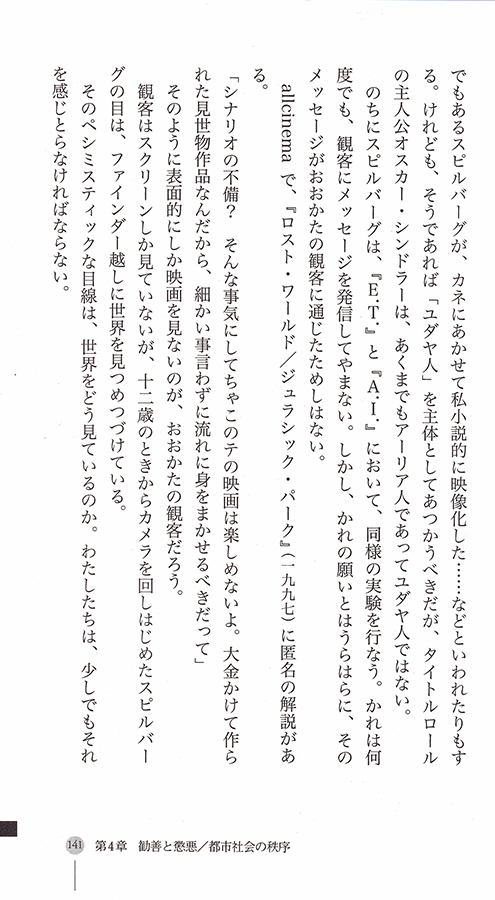 でもあるスピルバーグが、カネにあかせて私小説的に映像化した……などといわれたりもす
る。けれども、そうであれば「ユダヤ人」を主体としてあつかうべきだが、タイトルロール
の主人公オスカー・シンドラーは、あくまでもアーリア人であってユダヤ人ではない。
のちにスピルバーグは、『E.T.』と『A.I.』において、同様の実験を行なう。かれは何
度でも、観客にメッセージを発信してやまない。しかし、かれの願いとはうらはらに、その
メッセージがおおかたの観客に通じたためしはない。
allcinema で、『ロスト・ワールド／ジュラシック・パーク』（一九九七）に匿名の解説があ
る。
「シナリオの不備？　そんな事気にしてちゃこのテの映画は楽しめないよ。大金かけて作ら
れた見世物作品なんだから、細かい事言わずに流れに身をまかせるべきだって」
そのように表面的にしか映画を見ないのが、おおかたの観客だろう。
観客はスクリーンしか見ていないが、十二歳のときからカメラを回しはじめたスピルバー
グの目は、ファインダー越しに世界を見つめつづけている。
そのペシミスティックな目線は、世界をどう見ているのか。わたしたちは、少しでもそれ
を感じとらなければならない。
141 第4章　勧善と懲悪／都市社会の秩序